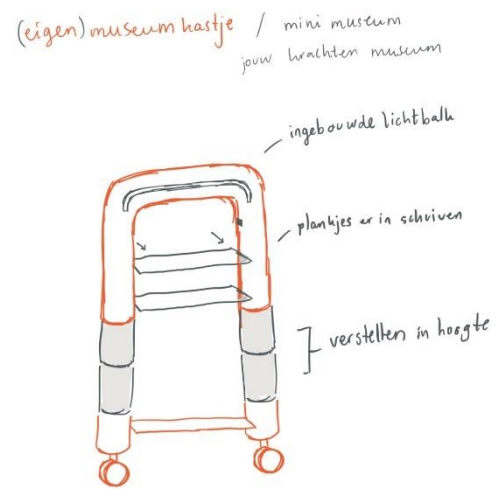 (eigen) museum kastje / mini museum
jouw krachten museum
ingebouwde lichtbalk
plankjes er in schuiven
verstellen in hoogte